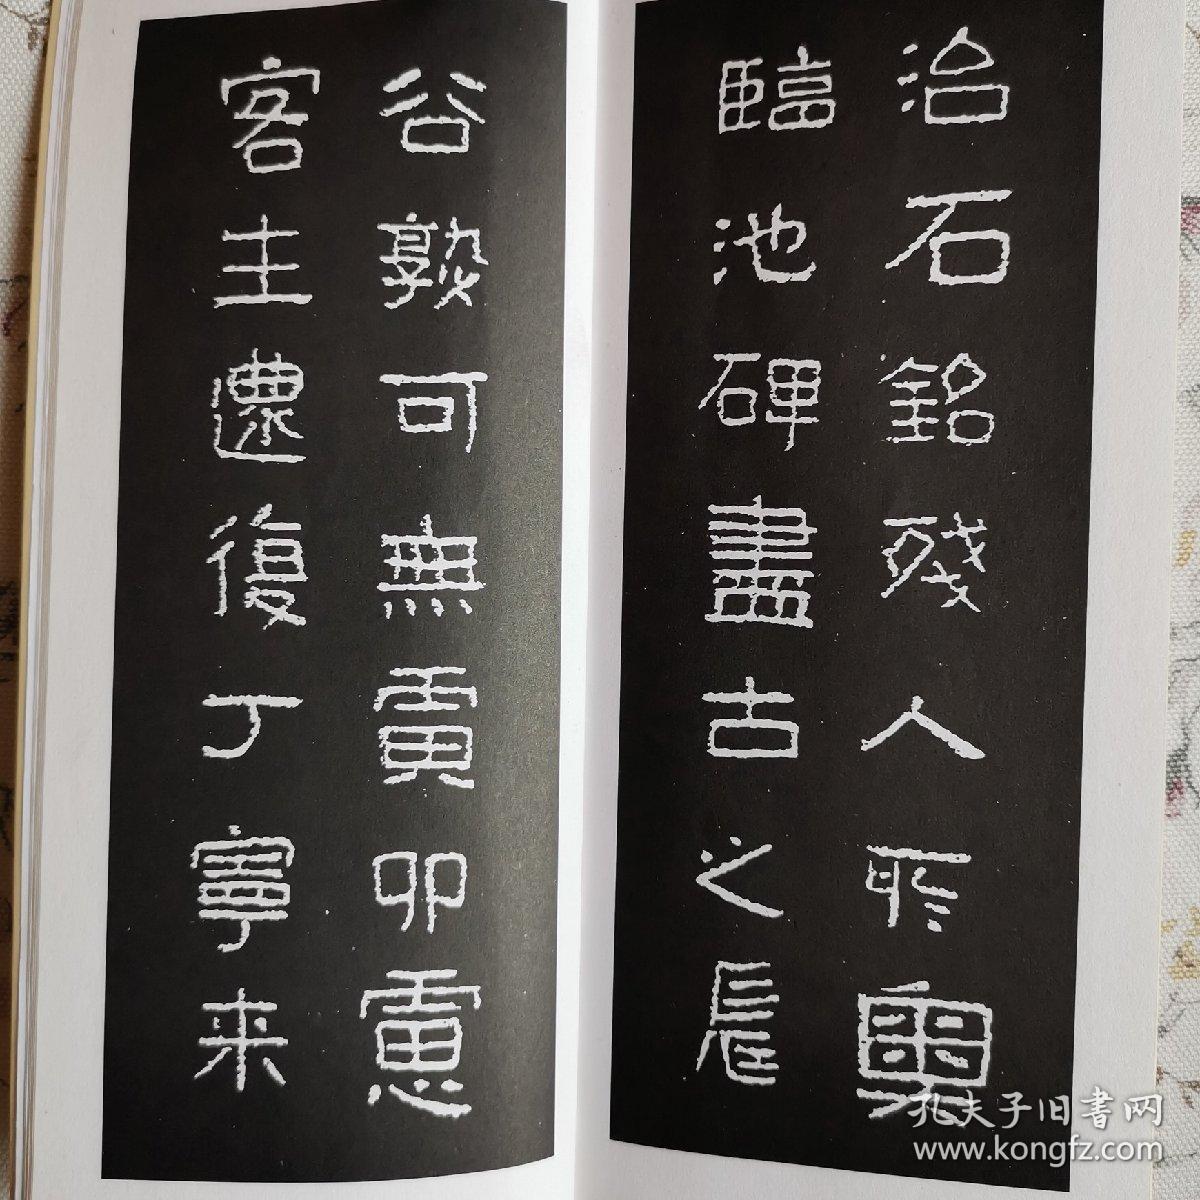 治石銘殘人所
臨池碑盡古之
谷熟可無寅卯慮
客主復丁寧来
孔夫子旧書网
www.kongfz.com